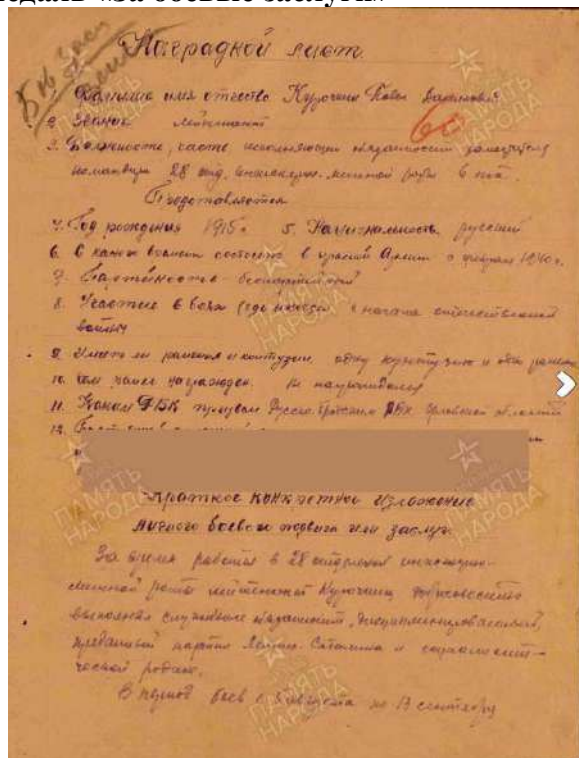 медаль «За боевые заслуги»
Наградной лист
1. Фамилия имя отчество Курочкин Павел
2. Звание лейтенант
60
3. Должность, часть исполняющий обязанности заместителя
командира 28 отд. инженерно-минной роты 6
Представляется
4. Год рождения 1915 г. 5. Национальность русский
6. С какого времени состоит в красной Армии с февраля 1940 г.
7. Партийность - беспартийный
8. Участие в боях (где и когда) с начала отечественной
войны
9. Имеет ли ранения и контузии одну контузию и одно ранение
10. Чем ранее награжден. Не награждался
11. Каким РВК призван РВК Орловской области
12.
Краткое конкретное изложение
личного боевого подвига или заслуг.
За время работы в 28 отдельной инженерно-
минной роты лейтенант Курочкин добросовестно
выполнял служебные обязанности, дисциплинированный,
преданный партии Ленина-Сталина и социалисти-
ческой родине.
В период боев с 5 августа по 13 сентября
ПАМЯТЬ
НАРОДА